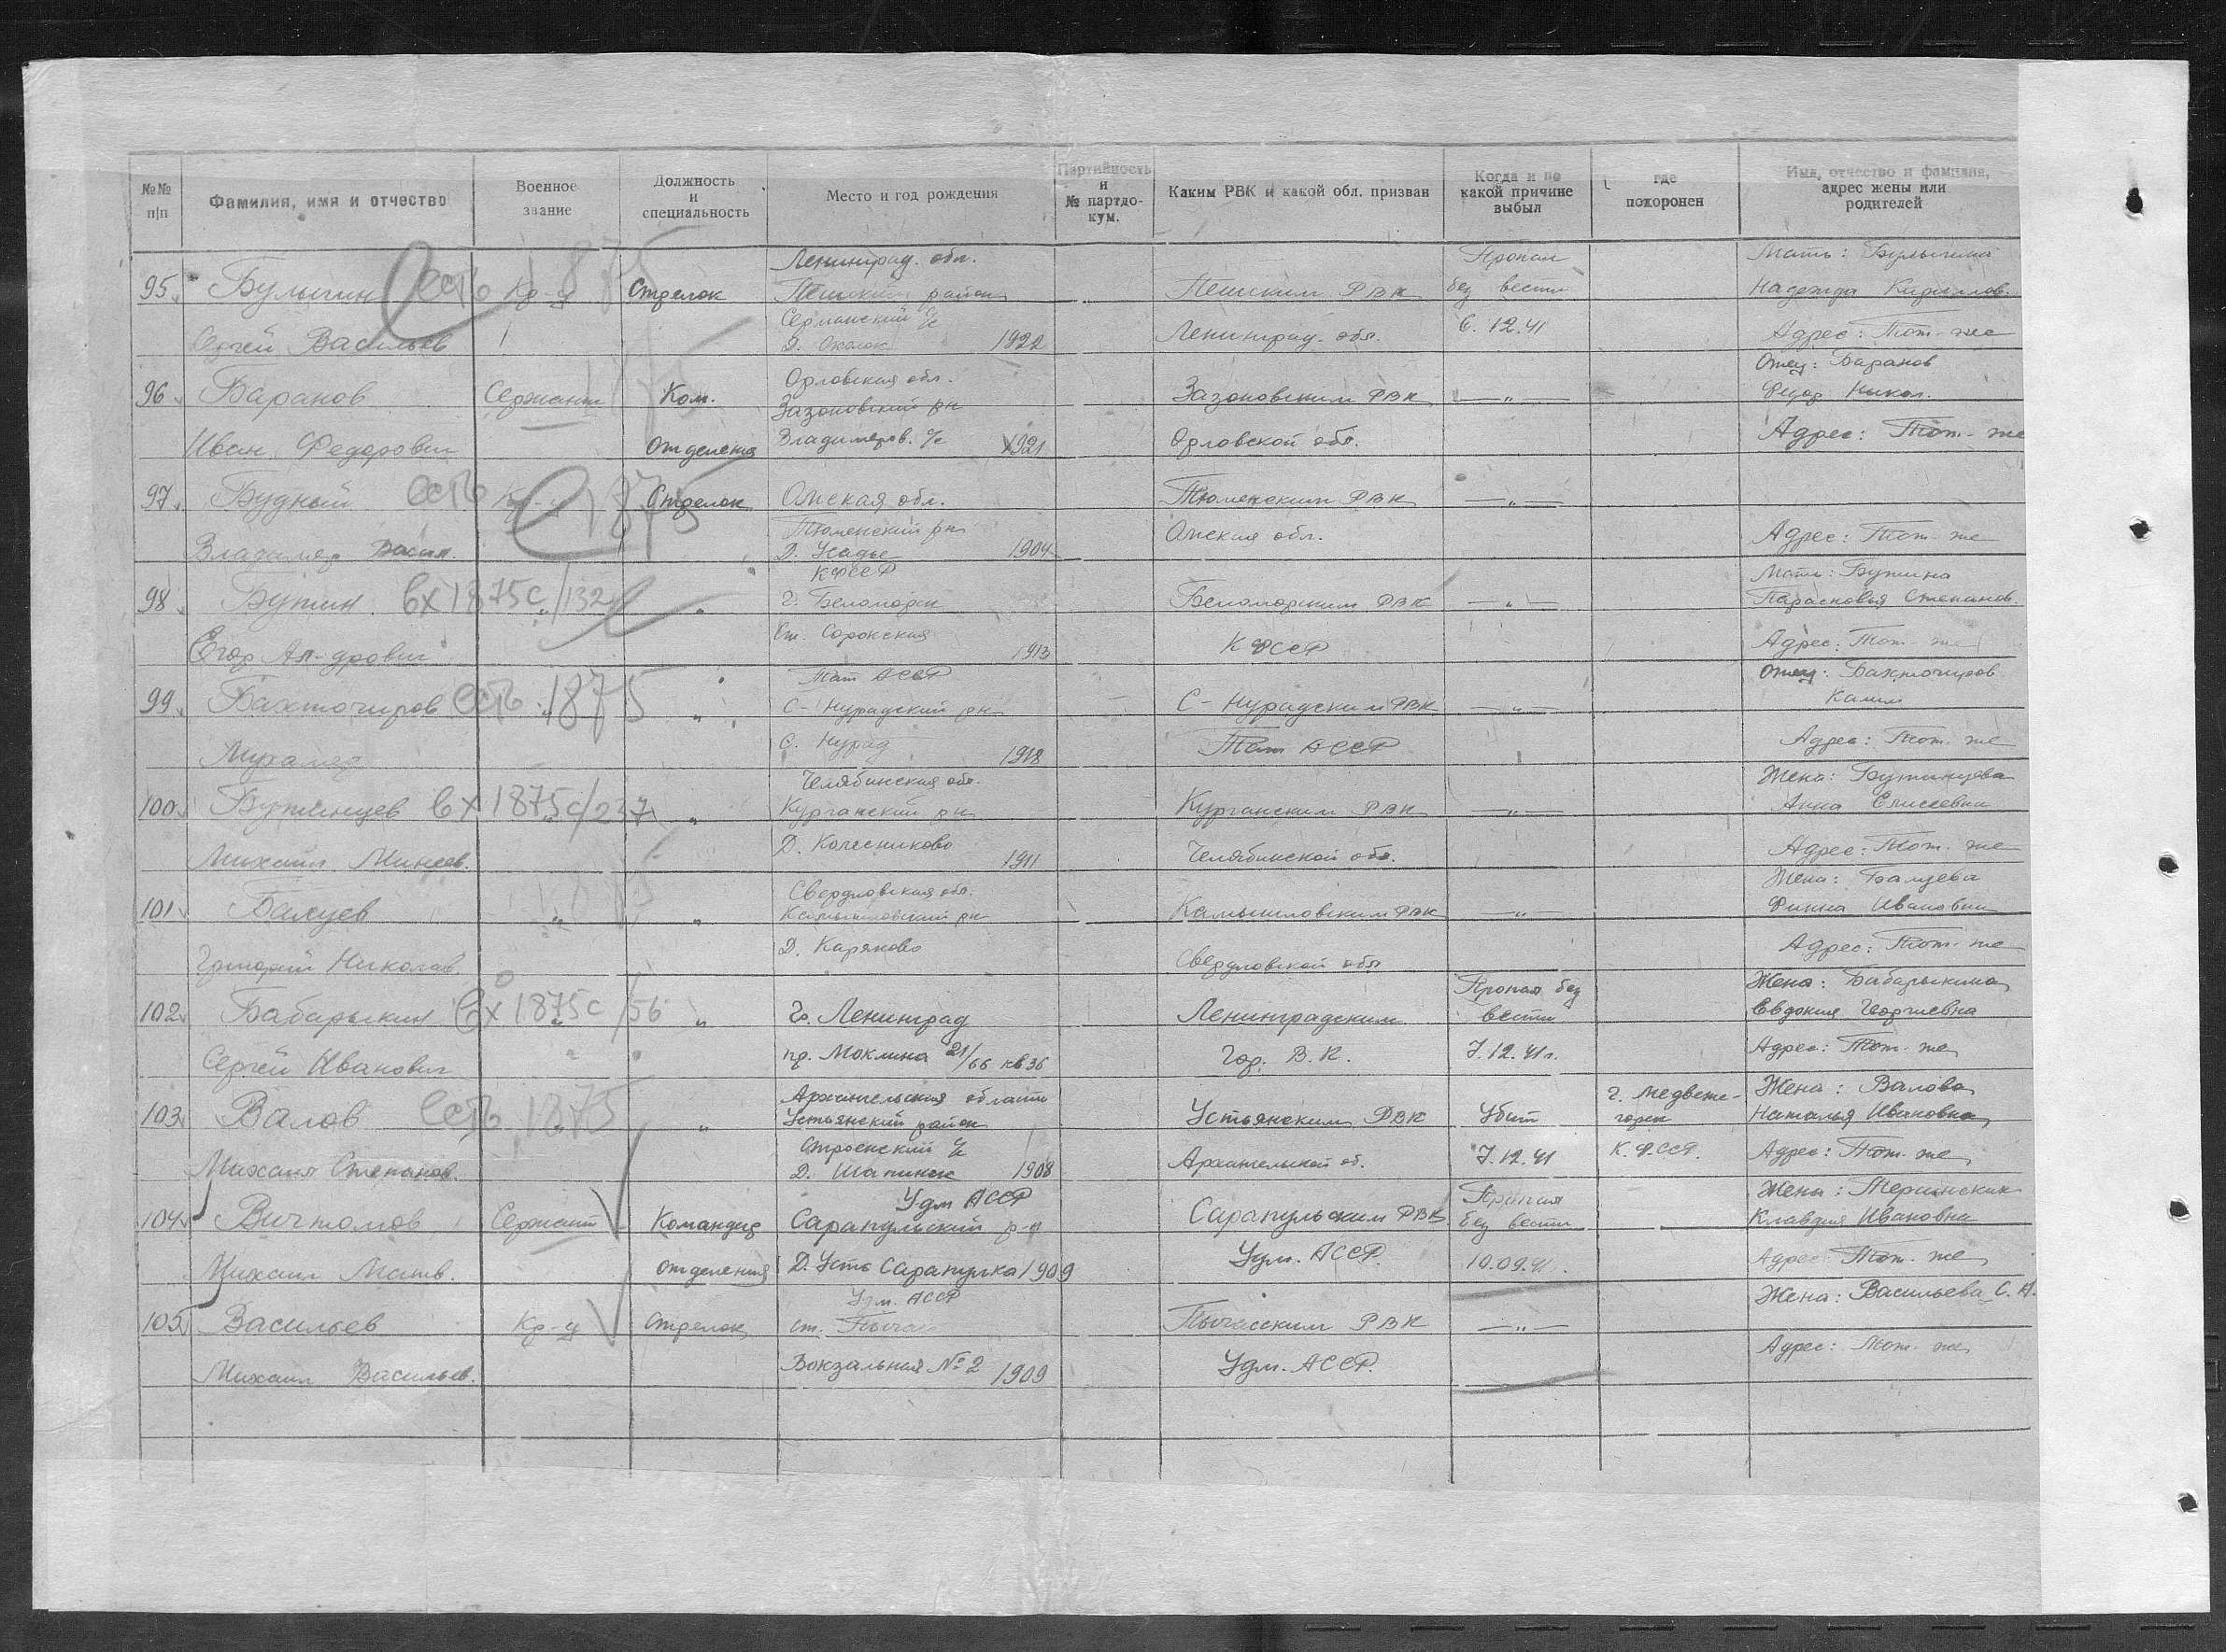 №№ п|п
Фамилия, имя и отчество
Военное звание
Должность и специальность
Место и год рождения
Партийность и № партдо-кум.
Каким РВК и какой обл. призван
Когда и по какой причине выбыл
где похоронен
Имя, отчество и фамилия, адрес жены или родителей
95 Булыгин есть 1875 Кр-ц Стрелок Ленинград. обл. район РВК Пропал без вести Мать: Булыгина Надежда Кириллов.
Сергей Васильев Д. Околок 1922 Ленинград. обл. 6.12.41 Адрес: Тот-же
96 Баранов Сержант Ком. Орловская обл. Зазоновский рн Зазоновским РВК —„— Отец: Баранов Федор Никол.
Иван Федорович отделения Владимиров. с/с 1921 Орловской обл. Адрес: Тот-же
97 Будный есть 1875 Кр-ц Стрелок Омская обл. Тюменским РВК —„—
Владимир Васил. Тюменский рн Д. 1904 Омская обл. Адрес: Тот-же
98 Бутин вх 1875с/132 „ „ КФССР г. Беломорск Беломорским РВК —„— Мать: Бутина Парасковья Степанов.
Егор Ал-дрович Ст. Сорокская 1913 КФССР Адрес: Тот-же
99 Бахточиров есть 1875 „ „ Тат АССР С-Нурадский рн С-Нурадским РВК —„— Отец: Бахточиров
С. Нурад 1918 Тат АССР Адрес: Тот-же
100 вх 1875с/237 „ „ Челябинская обл. Курганский рн Курганским РВК —„— Жена: Анна Елисеевна
Михаил Минеев. Д. Колесниково 1911 Челябинской обл. Адрес: Тот-же
101 Балуев „ „ Свердловская обл. Камышловский рн Камышловским РВК —„— Жена: Ивановна
Григорий Николаев. Д. Каряково Свердловской обл Адрес: Тот-же
102 Бабарыкин вх 1875с/56 „ „ Гр. Ленинград Ленинградским Пропал без вести Жена: Бабарыкина Евдокия Георгиевна
Сергей Иванович пр. Маклина 21/66 кв 36 Гор. В.К. 7.12.41г. Адрес: Тот-же
103 Валов есть 1875 „ „ Архангельская область Устьянский район Устьянским РВК Убит г. Медвеже-горск Жена: Валова Наталья Ивановна
Михаил Степанов. Строевский с/с Д. 1908 Архангельской об. 7.12.41 К.Ф.ССР. Адрес: Тот-же
104 Вичтомов Сержант Командир Удм АССР Сарапульский р-н Сарапульским РВК Пропал без вести Жена: Клавдия Ивановна
Михаил Матв. отделения Д. Усть Сарапулка 1909 Удм. АССР. 10.09.41. Адрес: Тот-же
105 Васильев Кр-ц Стрелок Удм. АССР ст. Пычас Пычасским РВК —„— Жена: Васильева С. И.
Михаил Васильев. Вокзальная №2 1909 Удм. АССР. Адрес: Тот-же